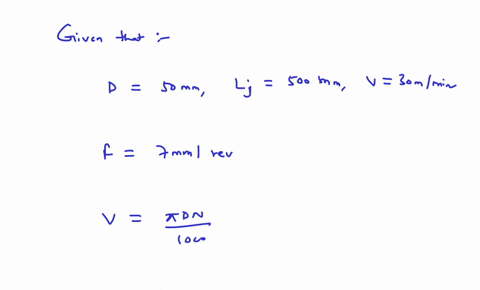 Given that :-
D = 50 mm, Lj = 500 mm, V = 30 m/min
f = 7 mm/rev
V = πDN/1000